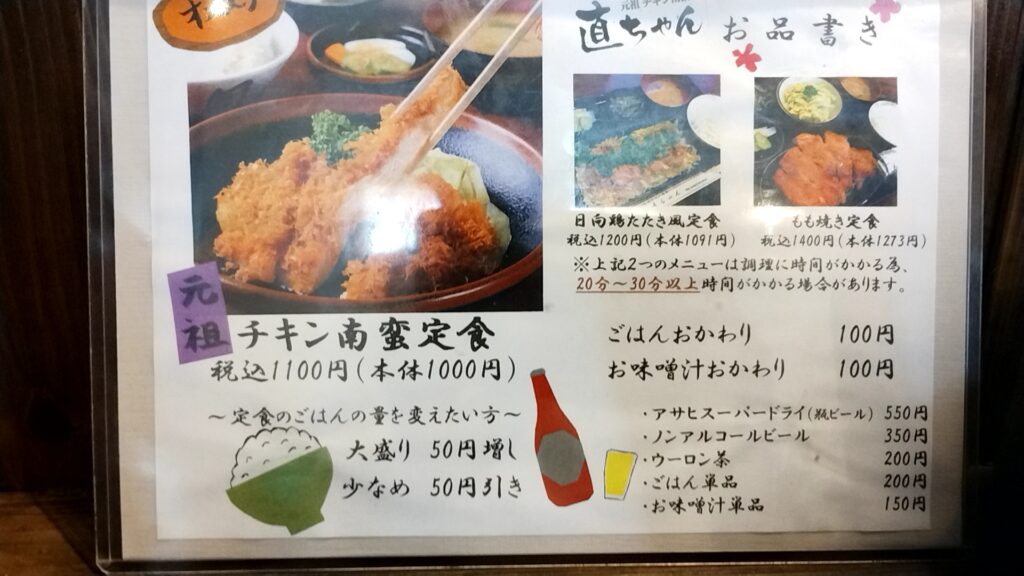 直ちゃん お品書き
日向鶏たたき風定食
税込1200円(本体1091円)
もも焼き定食
税込1400円(本体1273円)
※上記2つのメニューは調理に時間がかかる為、
20分〜30分以上時間がかかる場合があります。
元祖
チキン南蛮定食
税込1100円(本体1000円)
〜定食のごはんの量を変えたい方〜
大盛り 50円増し
少なめ 50円引き
ごはんおかわり 100円
お味噌汁おかわり 100円
・アサヒスーパードライ(瓶ビール) 550円
・ノンアルコールビール 350円
・ウーロン茶 200円
・ごはん単品 200円
・お味噌汁単品 150円